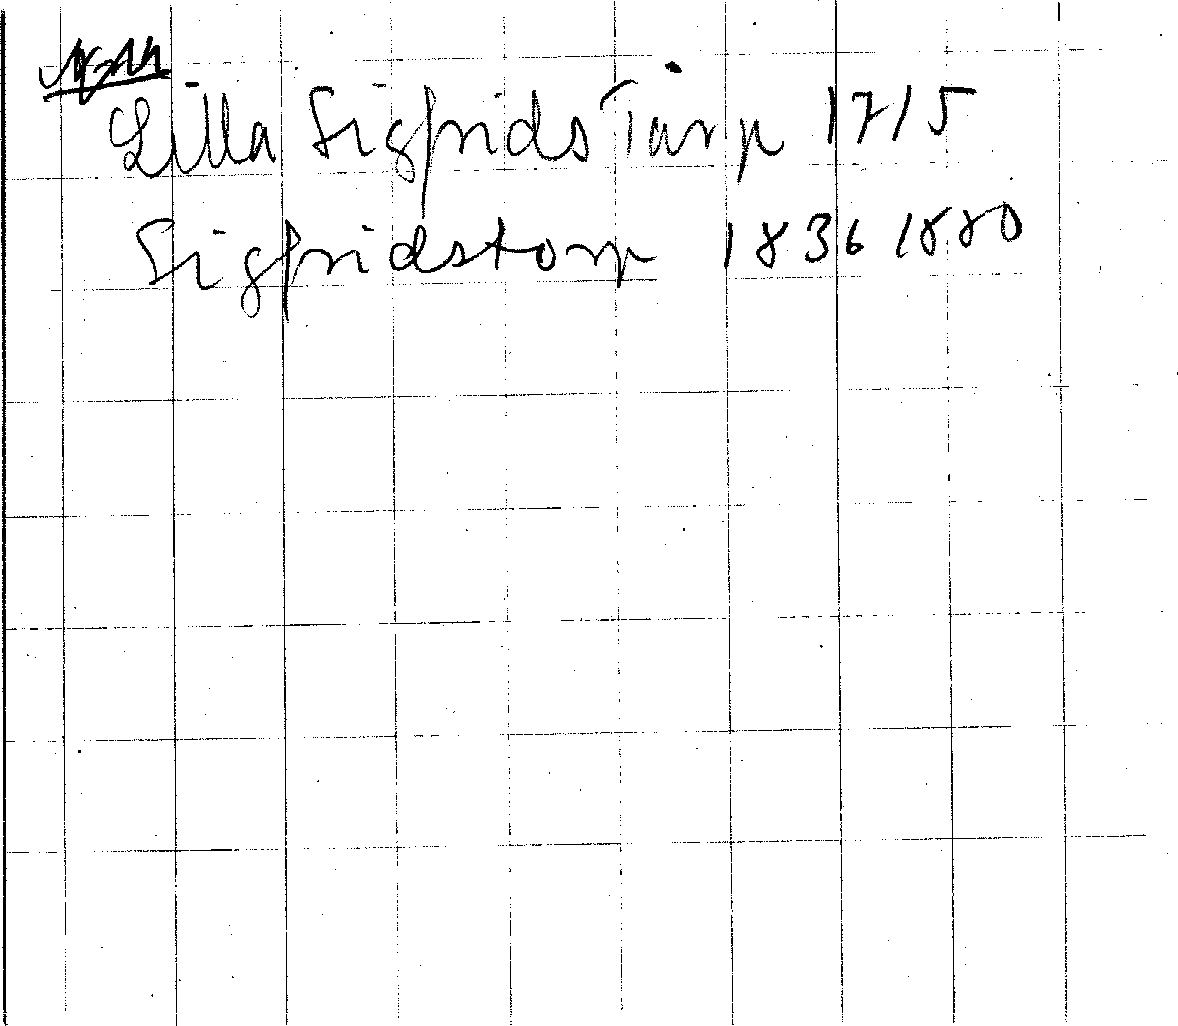 Lilla Sigfrids Tårp 1715
Sigfridstorp 1836 1880